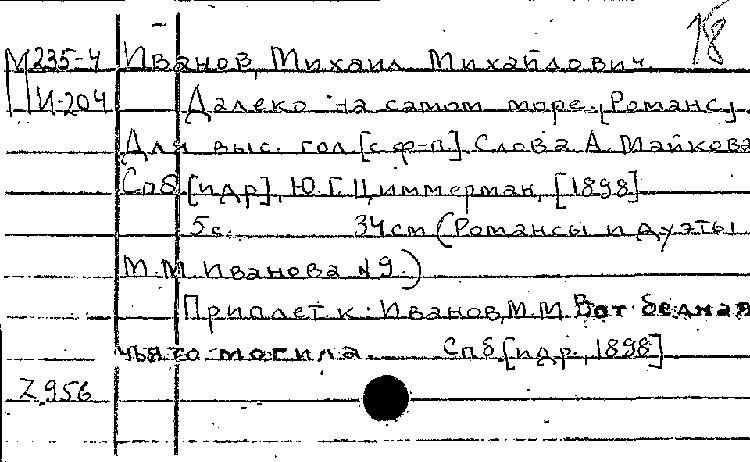 18
М235-4 Иванов, Михаил Михайлович.
И-204 Далеко на самом море. [Романс].
Для выс. гол. [с ф-п]. Слова А. Майкова
Спб [и др], Ю.Г. Циммерман, [1898]
5с. 34cm (Романсы и дуэты
М.М. Иванова №9.)
Приплет к: Иванов, М.М. Вот бедная
чья-то могила. Спб [и др., 1898]
Z 956